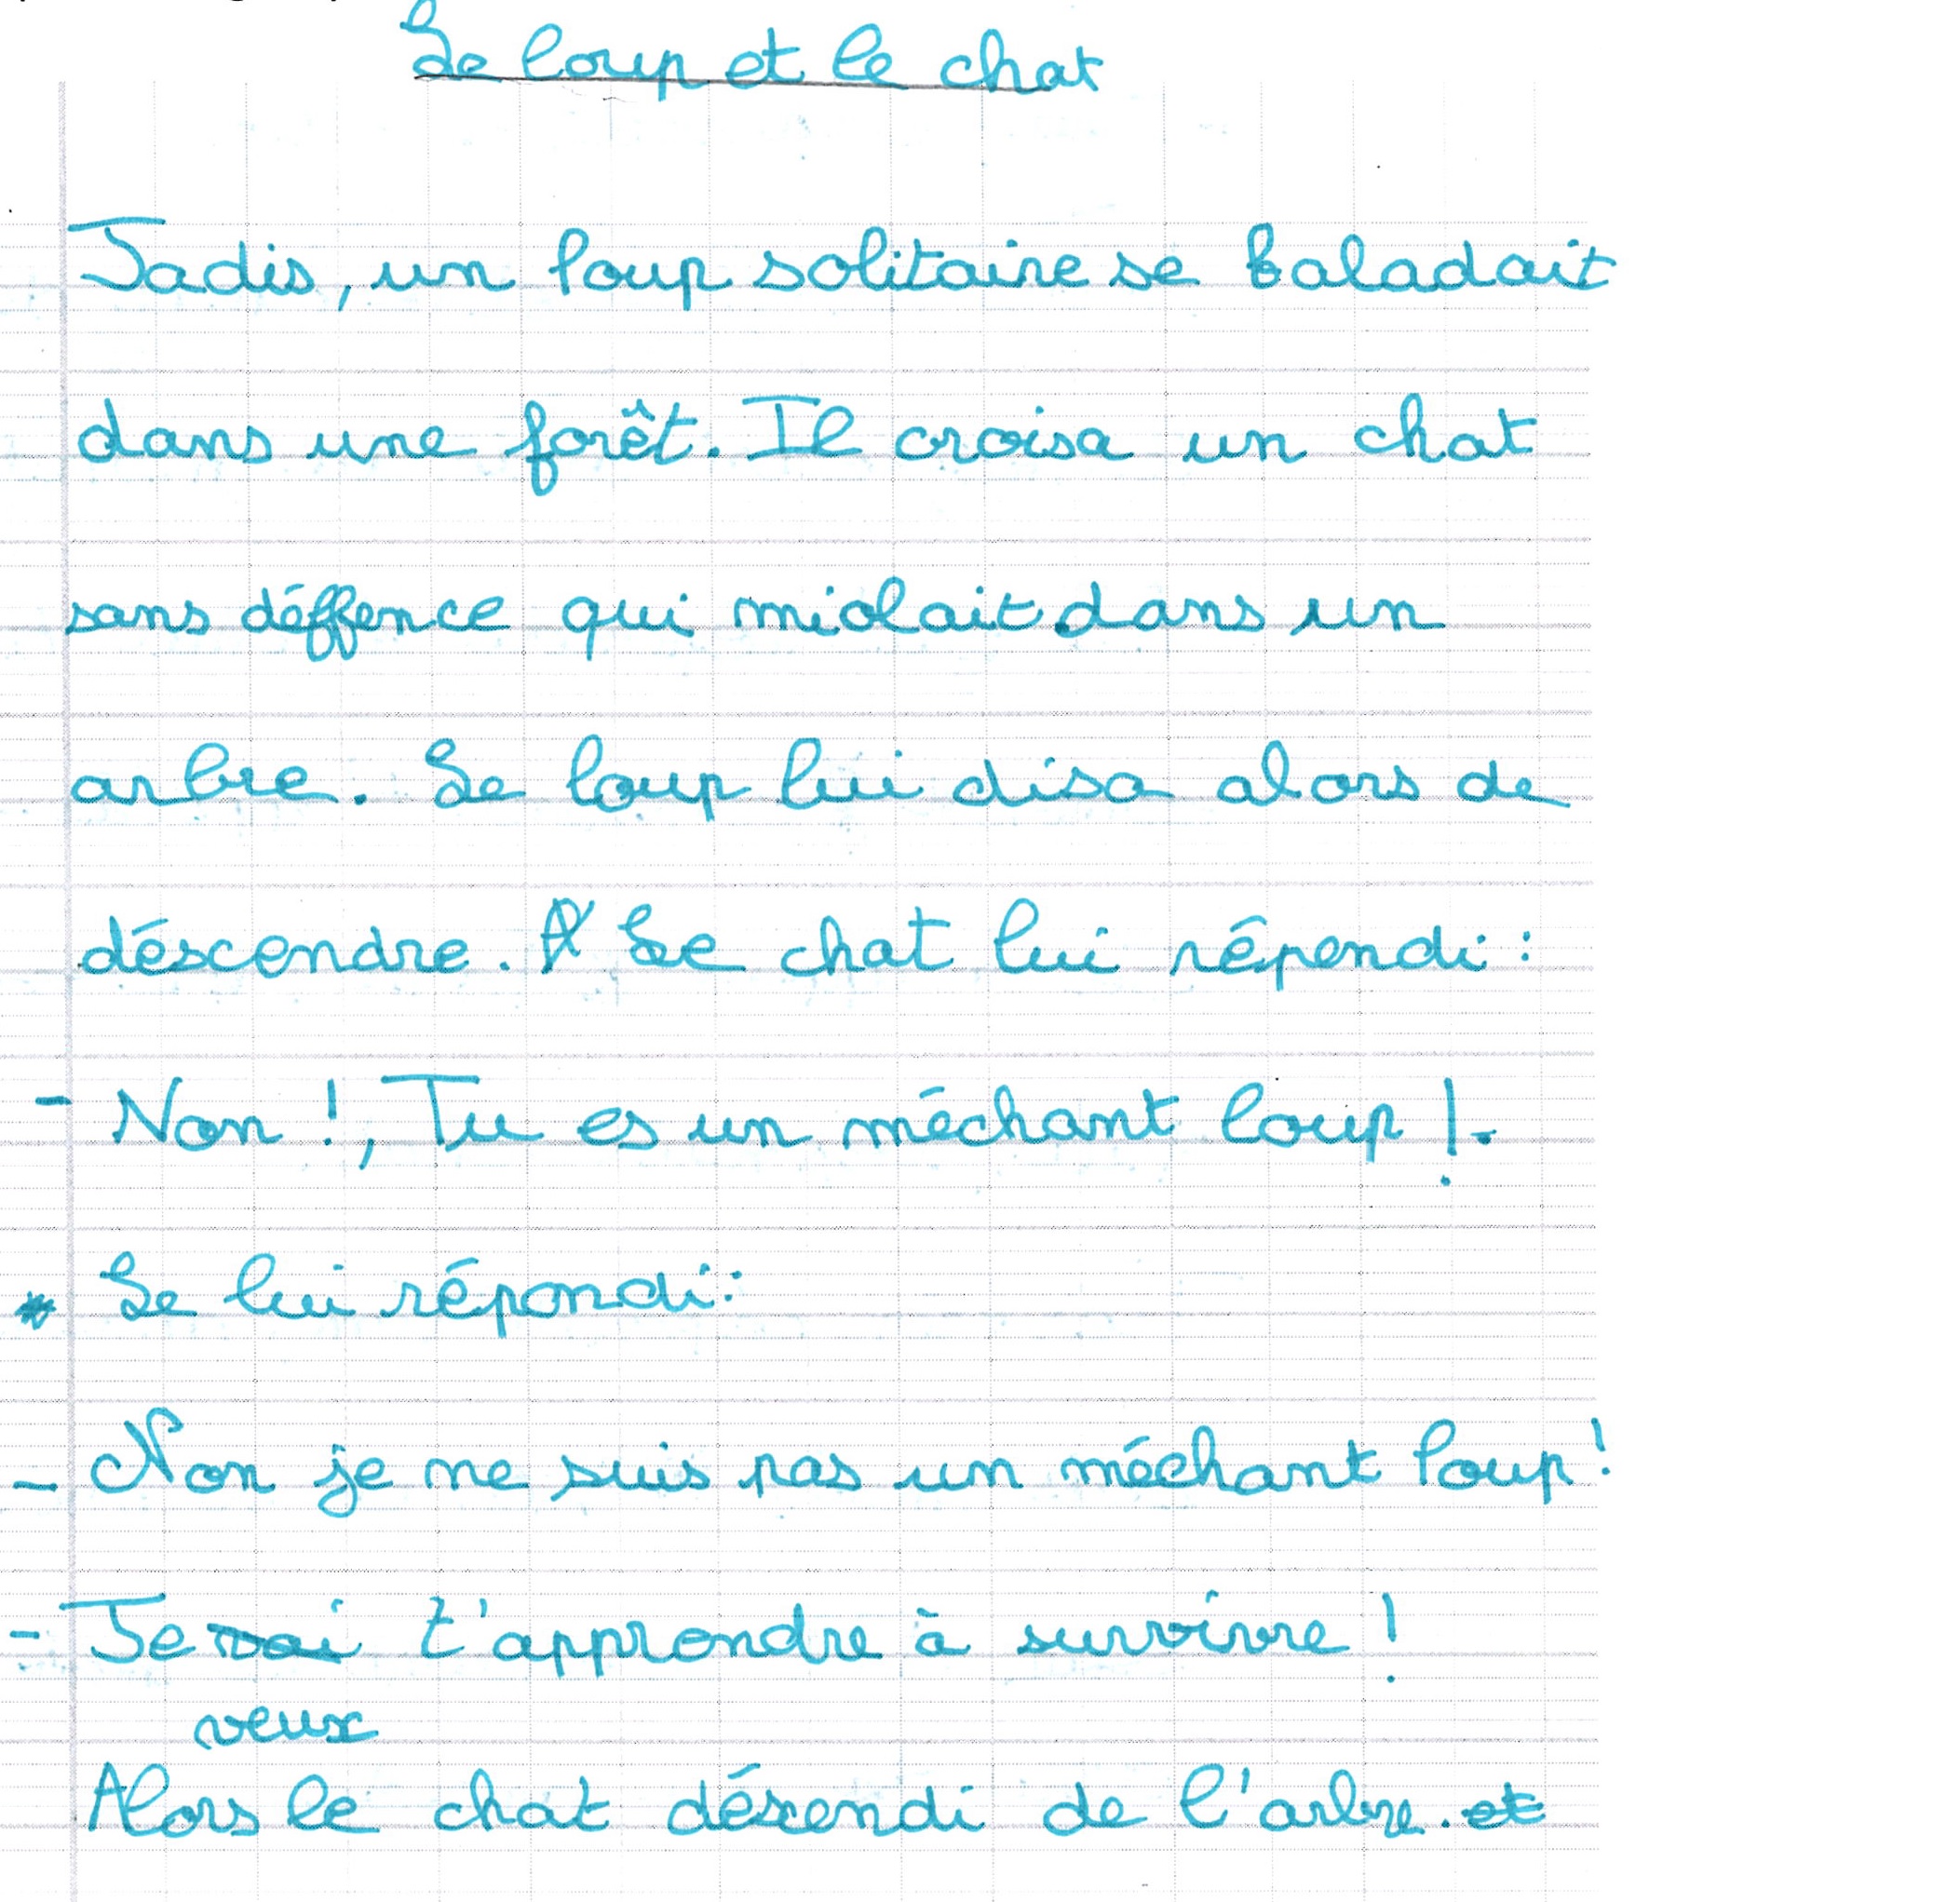 Le loup et le chat
Jadis, un loup solitaire se baladait
dans une forêt. Il croisa un chat
sans déffence qui miolait dans un
arbre. Le loup lui disa alors de
déscendre. Le chat lui répendi :
- Non !, Tu es un méchant loup !.
Le lui répondi :
- Non je ne suis pas un méchant loup !
- Je vai t'apprendre à survivre !
veux
Alors le chat déscendi de l'arbre. et